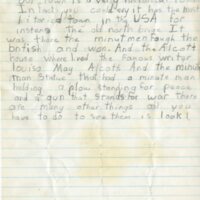 Our town is a very historical
In fact you could say it has the most
historical town in the USA for
instens The old north brige It
was there the minutmen fough the
british and won. And the Alcott
house where lived the famous writer
louisa May Alcott And the minute
man statue that had a minute man
holding a plow standing for peace
and a gun that stands for war there
are many other things all you
have to do to see them is look!